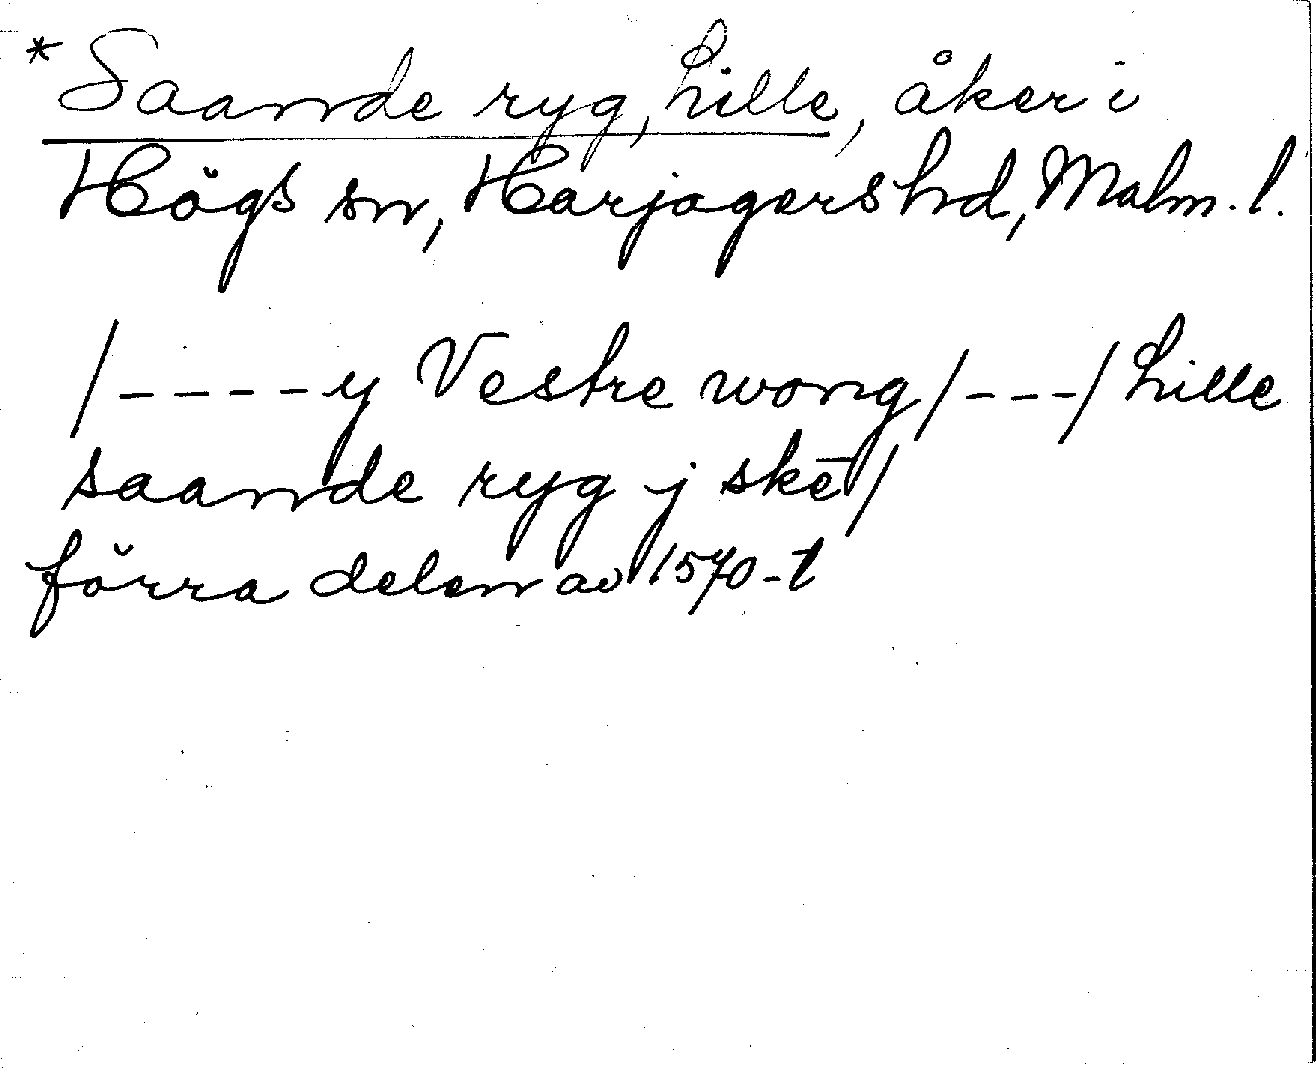 *Saande ryg, Lille, åker i
Högs sn, Harjagers hd, Malm. l.
/----y Vestre wong/---/Lille
saande ryg j skē/
förra delen av 1570-t